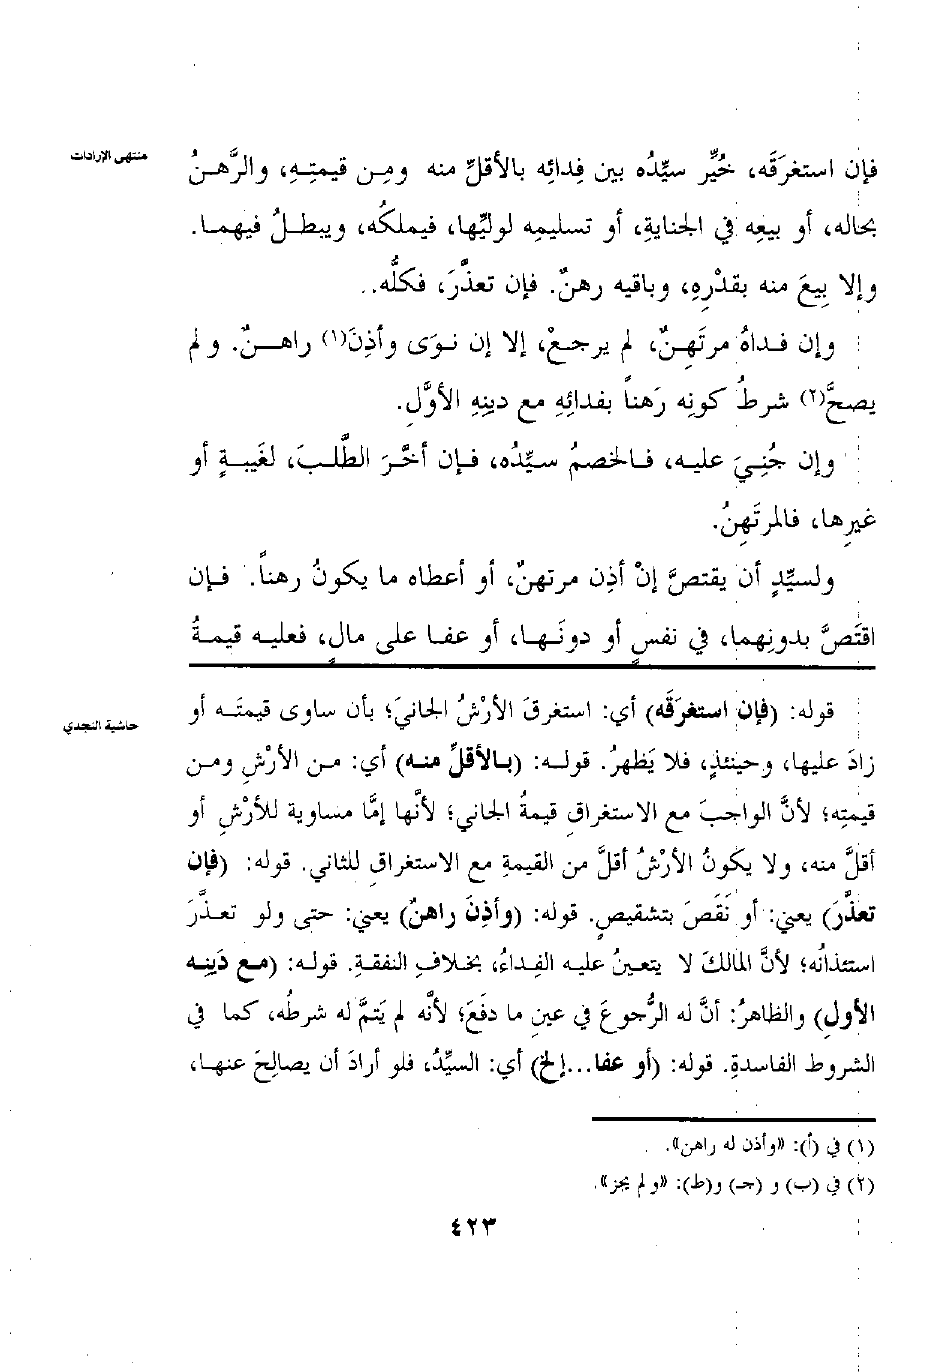 منتهى الإرادات
فإن استغرَقَه، خُيِّر سيِّدُه بين فِدائِه بالأقلِّ منه ومِن قيمتِهِ، والرَّهنُ
بحاله، أو بيعِه في الجنايةِ، أو تسليمِه لوليِّها، فيملكُه، ويبطلُ فيهما.
وإلا بِيعَ منه بقدْرِهِ، وباقيه رهنٌ. فإن تعذَّرَ، فكلُّه.
وإن فداهُ مرتَهِنٌ، لم يرجعْ، إلا إن نوَى وأذِنَ(١) راهنٌ. ولم
يصحَّ(٢) شرطُ كونِه رَهناً بفدائِهِ مع دينِهِ الأوَّلِ.
وإن جُنِيَ عليه، فالخصمُ سيِّدُه، فإن أخَّرَ الطَّلبَ، لغَيبةٍ أو
غيرِها، فالمرتَهِنُ.
ولسيِّدٍ أن يقتصَّ إنْ أذِن مرتهنٌ، أو أعطاه ما يكونُ رهناً. فإن
اقتَصَّ بدونِهما، في نفسٍ أو دونَها، أو عفا على مالٍ، فعليه قيمةُ
حاشية النجدي
قوله: (فإن استغرَقَه) أي: استغرقَ الأرْشُ الجانيَ؛ بأن ساوى قيمتَه أو
زادَ عليها، وحينئذٍ، فلا يَظهرُ. قوله: (بالأقلِّ منه) أي: من الأرْشِ ومن
قيمتِه؛ لأنَّ الواجبَ مع الاستغراقِ قيمةُ الجاني؛ لأنَّها إمَّا مساوية للأرْشِ أو
أقلَّ منه، ولا يكونُ الأرْشُ أقلَّ من القيمةِ مع الاستغراقِ للثاني. قوله: (فإن
تعذَّرَ) يعني: أو نَقَصَ بتشقيصٍ. قوله: (وأذِنَ راهنٌ) يعني: حتى ولو تعذَّرَ
استئذانُه؛ لأنَّ المالكَ لا يتعينُ عليه الفِداءُ، بخلافِ النفقةِ. قوله: (مع دَينِه
الأولِ) والظاهرُ: أنَّ له الرُّجوعَ في عينِ ما دفَعَ؛ لأنَّه لم يَتمَّ له شرطُه، كما في
الشروط الفاسدةِ. قوله: (أو عفا...إلخ) أي: السيِّدُ، فلو أرادَ أن يصالِحَ عنها،
(١) في (أ): «وأذن له راهن».
(٢) في (ب) و (جـ) و(ط): «ولم يجز».
٤٢٣